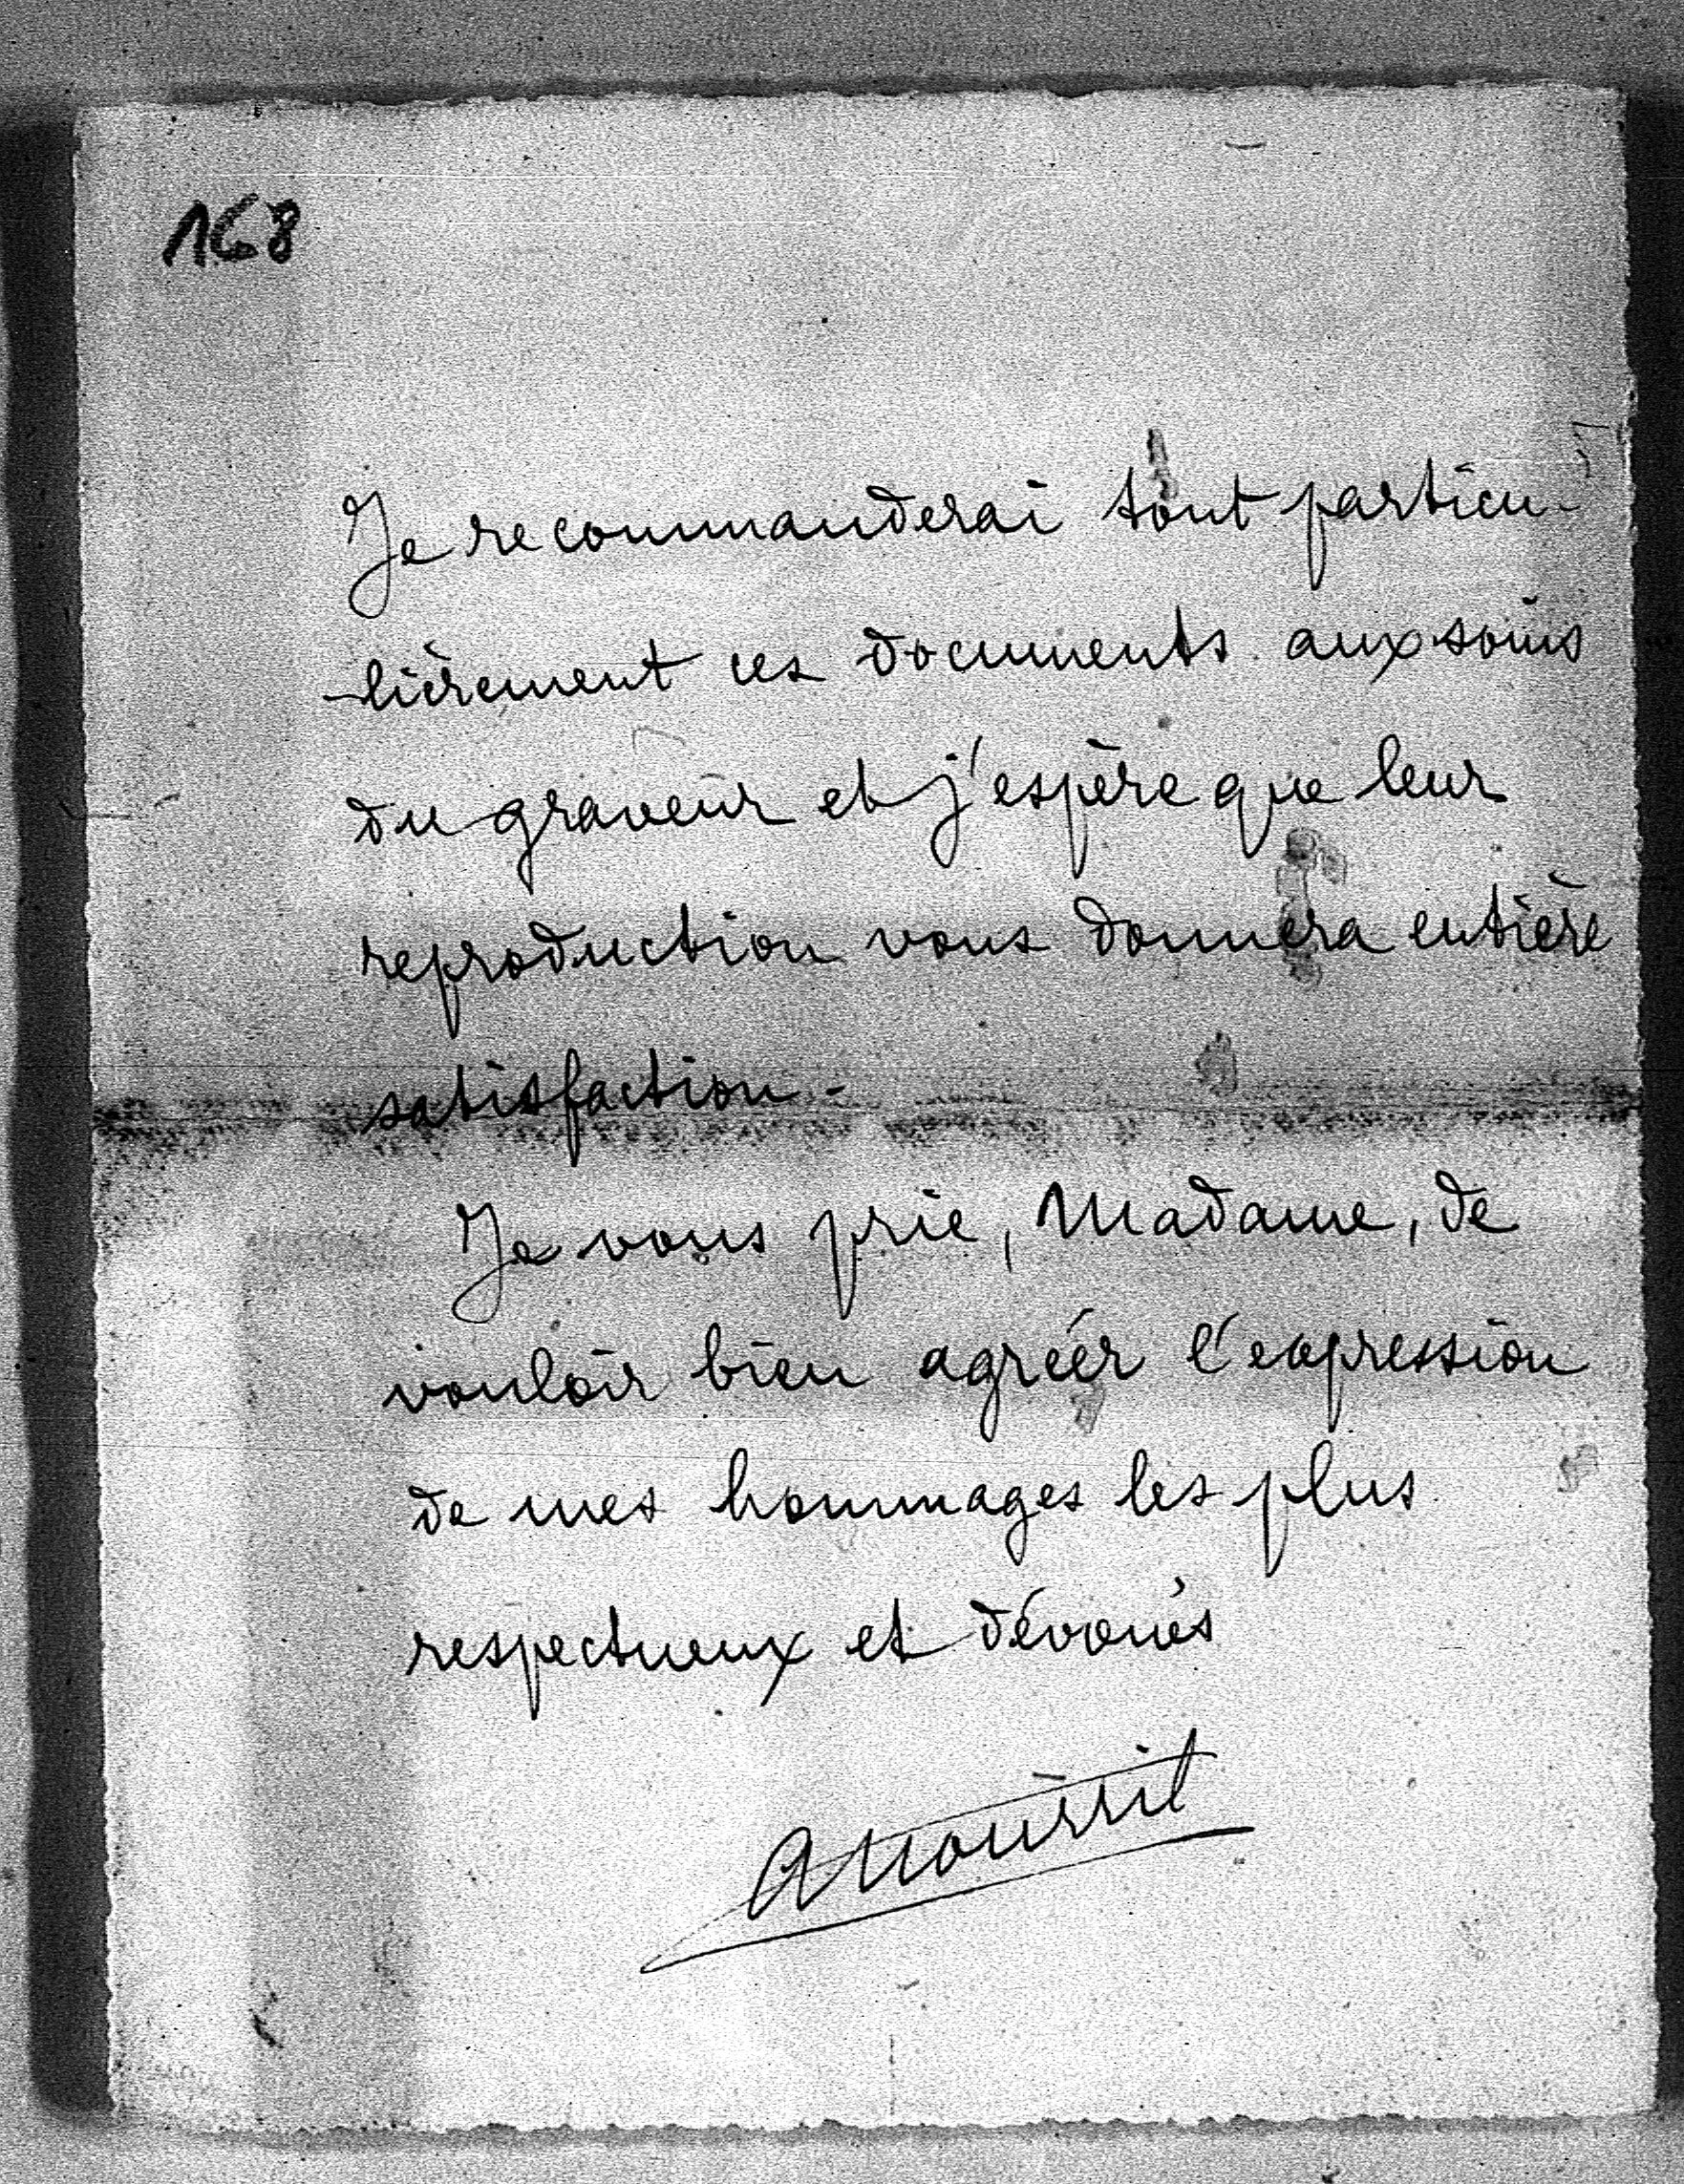 168
Je recommanderai tout particu-
-lièrement ces documents aux soins
du graveur et j'espère que leur
reproduction vous donnera entière
satisfaction -
Je vous prie, Madame, de
vouloir bien agréer l'expression
de mes hommages les plus
respectueux et dévoués
ANourrit